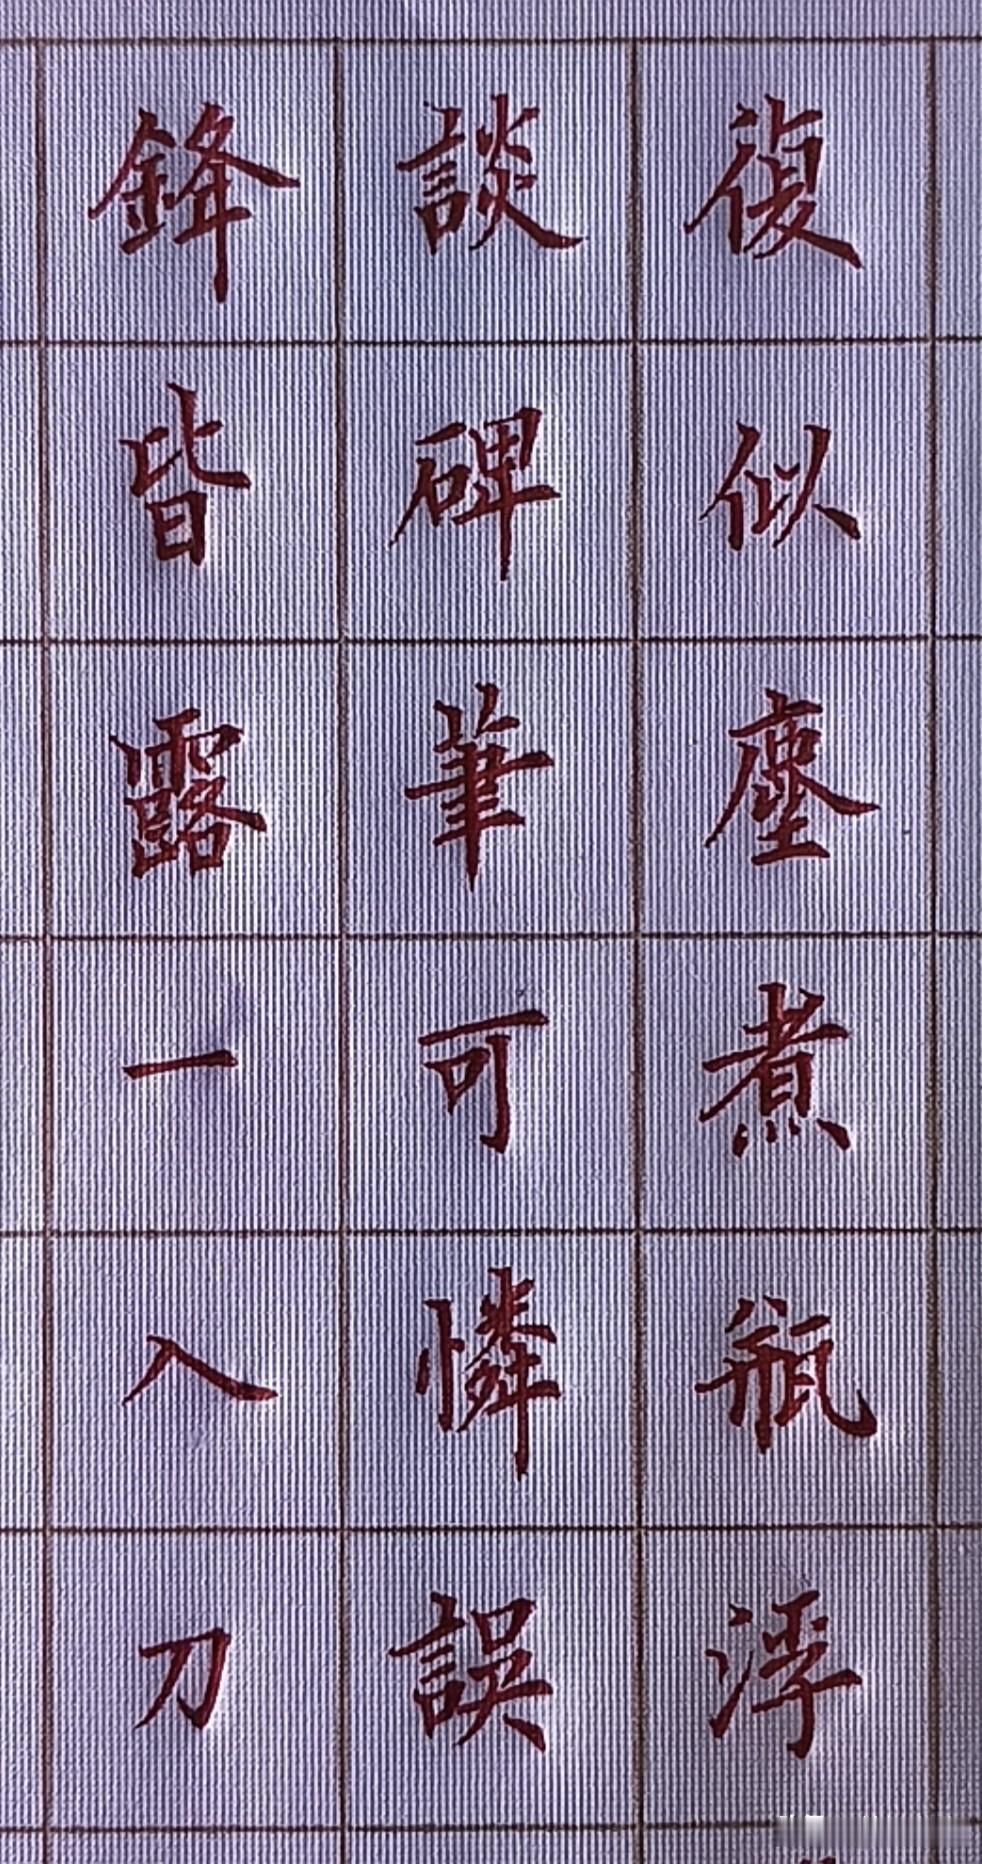 復似塵煮瓶浮
談碑筆可憐誤
鋒皆露一入刀